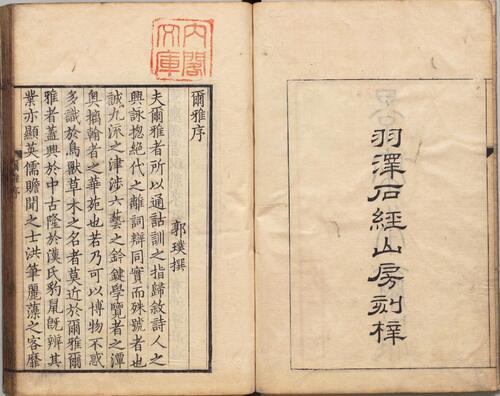 羽澤石經山房刻梓
內閣
文庫
爾雅序
郭璞撰
夫爾雅者所以通詁訓之指歸敘詩人之
興詠揔絶代之離詞辯同實而殊號者也
誠九流之津涉六藝之鈐鍵學覽者之潭
奧摛翰者之華苑也若乃可以博物不惑
多識於鳥獸草木之名者莫近於爾雅爾
雅者蓋興於中古隆於漢氏豹鼠既辨其
業亦顯英儒贍聞之士洪筆麗藻之客靡